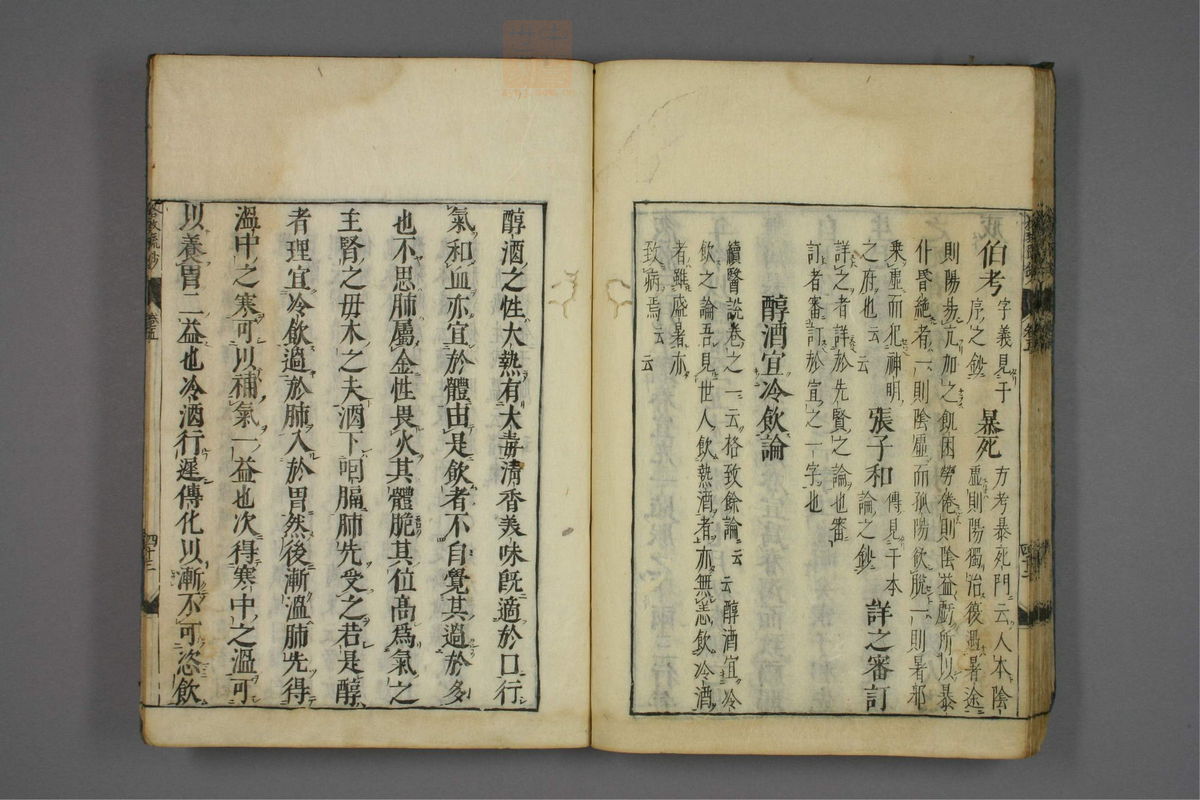 伯考 字義見于序之鈔 暴死 方考暴死門云人本陰虛則陽獨治復遇暑途
則陽昜亢加之飢困勞倦則陰益虧所以暴
仆昏絶者一則陰虛而孤陽飲脫一則暑邪
乗虛而犯神明
之府也云云 張子和 傳見于本論之鈔 詳之審訂
詳之者詳於先賢之論也審
訂者審訂於宜之一字也
醇酒宜冷飲論
續醫說卷之一云格致餘論云云醇酒宜冷
飲之論吾見世人飲熱酒者亦無恙飲冷酒
者雖盛暑亦
致病焉云云
醇酒之性大熱有大毒清香美味既適於口行
氣和血亦宜於體由是飲者不自覺其過於多
也不思肺屬金性畏火其體脆其位高爲氣之
主腎之母木之夫酒下咽膈肺先受之若是醇
者理宜冷飲過於肺入於胃然後漸溫肺先得
溫中之寒可以補氣一益也次得寒中之溫可
以養胃二益也冷酒行遲傳化以漸不可恣飲
卷五
四十三